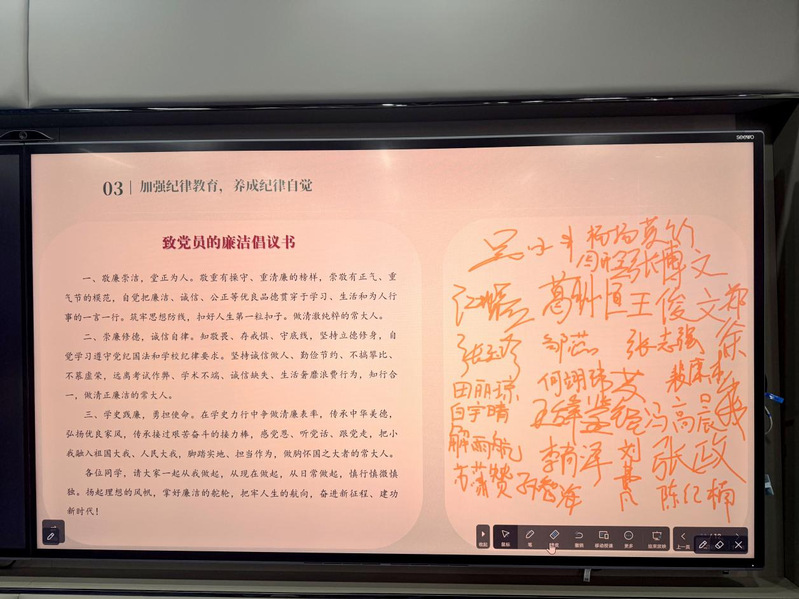 seewo
03 | 加强纪律教育，养成纪律自觉
致党员的廉洁倡议书
一、敬廉崇洁，堂正为人。敬重有操守、重清廉的榜样，崇敬有正气、重
气节的模范，自觉把廉洁、诚信、公正等优良品德贯穿于学习、生活和为人行
事的一言一行。筑牢思想防线，扣好人生第一粒扣子。做清澈纯粹的常大人。
二、崇廉修德，诚信自律。知敬畏、存戒惧、守底线，坚持立德修身，自
觉学习遵守党纪国法和学校纪律要求。坚持诚信做人、勤俭节约、不搞攀比、
不慕虚荣，远离考试作弊、学术不端、诚信缺失、生活奢靡浪费行为，知行合
一，做清正廉洁的常大人。
三、学史践廉，勇担使命。在学史力行中争做清廉表率，传承中华美德，
弘扬优良家风，传承接过艰苦奋斗的接力棒，感党恩、听党话、跟党走，把小
我融入祖国大我、人民大我，脚踏实地、担当作为，做胸怀国之大者的常大人。
各位同学，请大家一起从我做起，从现在做起，从日常做起，慎行慎微慎
独。扬起理想的风帆，掌好廉洁的舵轮，把牢人生的航向，奋进新征程、建功
新时代！
杨扬
张博文
葛 恒 王俊文 郑
邹 张志强 徐
田丽琼 何翊玮
白宇晴 冯高晨
解雨航 李 刘 张政
苏 孙智 陈亿楠
鼠标 笔 更多 结束放映 上一页